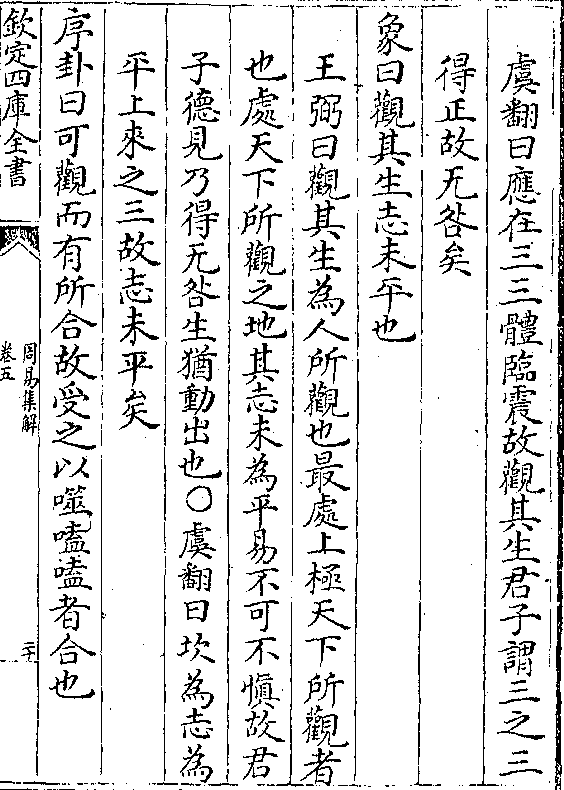 虞翻曰應在三三體臨震故觀其生君子謂三之三
得正故无咎矣
象曰觀其生志未平也
王弼曰觀其生為人所觀也最處上極天下所觀者
也處天下所觀之地其志未為平易不可不慎故君
子德見乃得无咎生猶動出也〇虞翻曰坎為志為
平上來之三故志未平矣
序卦曰可觀而有所合故受之以噬嗑嗑者合也
欽定四庫全書
周易集解
卷五
二十